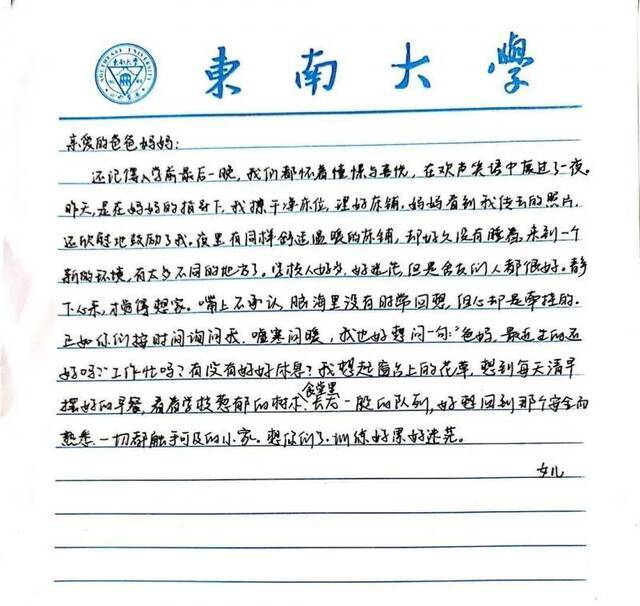 SOUTHEAST UNIVERSITY
東南大學
東南大學
亲爱的爸爸妈妈:
还记得入学前最后一晚,我们都怀着憧憬与喜悦,在欢声笑语中度过了一夜。
昨天,是在妈妈的指导下,我擦干净床位,理好床铺.妈妈看到我传去的照片,
还欣慰地鼓励了我。夜里有同样舒适温暖的床铺,却好久没有睡着。来到一个
新的环境,有太多不同的地方了。学校人好多,好迷茫,但是舍友们人都很好。静
下心来,才懂得想家。嘴上不承认,脑海里没有时常回想,但心却是牵挂的.
正如你们按时间询问我.嘘寒问暖,我也好想问一句:"爸妈,最近生活还
好吗?工作忙吗?有没有好好休息?我想起窗台上的花草,想到每天清早
摆好的早餐.看着学校葱郁的树木、食堂里长龙一般的队列,好想回到那个安全而
熟悉.一切都触手可及的小家。想你们了.训练好累好迷茫。
女儿